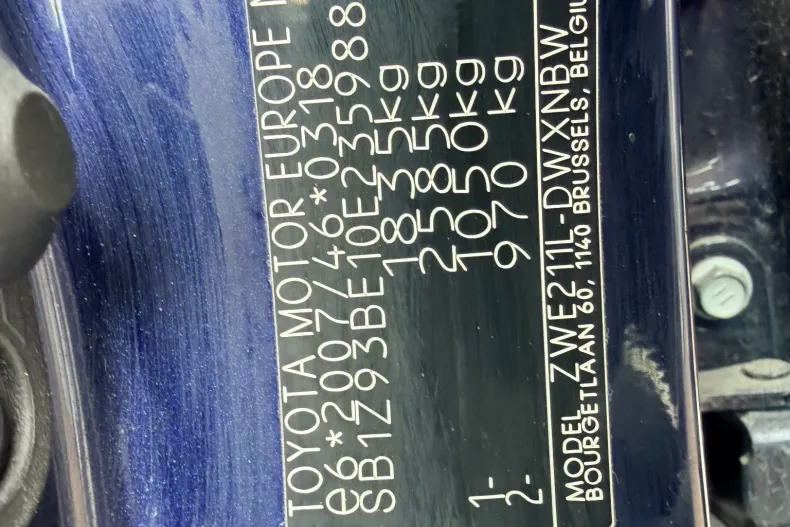 TOYOTA MOTOR EUROPE N
e6*2007/46*0318
SB1Z93BE10E235988
1835kg
2585kg
1- 1050kg
2- 970 kg
MODEL ZWE211L-DWXNBW
BOURGETLAAN 60, 1140 BRUSSELS, BELGIU